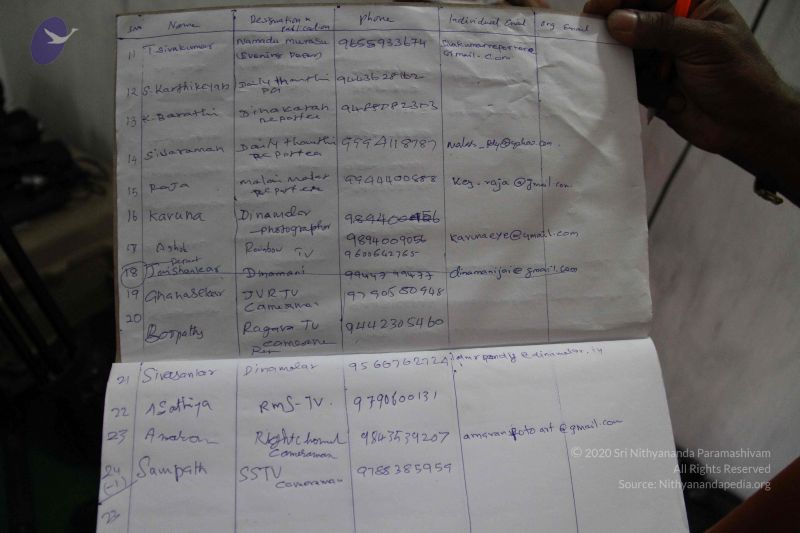 S.No Name Designation & Publication Phone Individual Email Org. Email
11 T Sivakumar Namadu Murasu (Evening Paper) 9655933674 Sivakumarreporter@gmail.com
12 S. Karthikeyan Daily thanthi
13 K. Barathi Dinakaran Reporter
14 Sivaraman Daily thanthi Reporter 9994118787
15 Raja Malai malar Reporter 9944400888 key.raja@gmail.com
16 Karuna Dinamalar photographer
17 Ashok Rainbow TV 9894009056 karunaeye@gmail.com
9600642765
18 Jaishankar Dinamani dinamanijai@gmail.com
19 Ghanasekar JVR TV Cameraman 9790550948
20 Boopathy Ragava TV Camera 9442305460
21 Sivasankar Dinamalar 9566762724
22 A Sathiya RMS-TV. 9790600131
23 Amaran Right channel Cameraman 9843539207 amaranfotoart@gmail.com
24 (-1) Sampath SSTV Cameraman 9788385959
© 2020 Sri Nithyananda Paramashivam
All Rights Reserved
Source: Nithyanandapedia.org